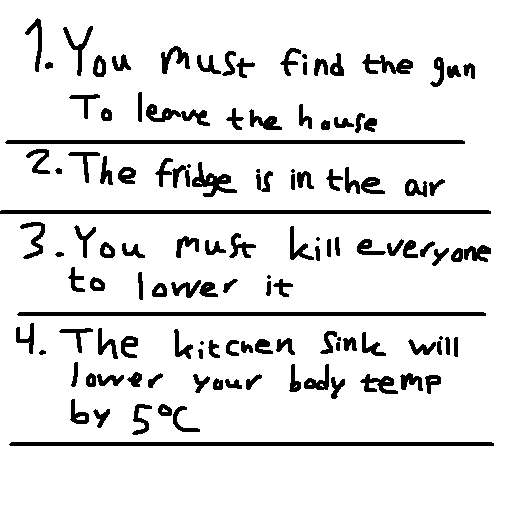 1. You must find the gun
To leave the house
2. The fridge is in the air
3. You must kill everyone
to lower it
4. The kitchen sink will
lower your body temp
by 5°C